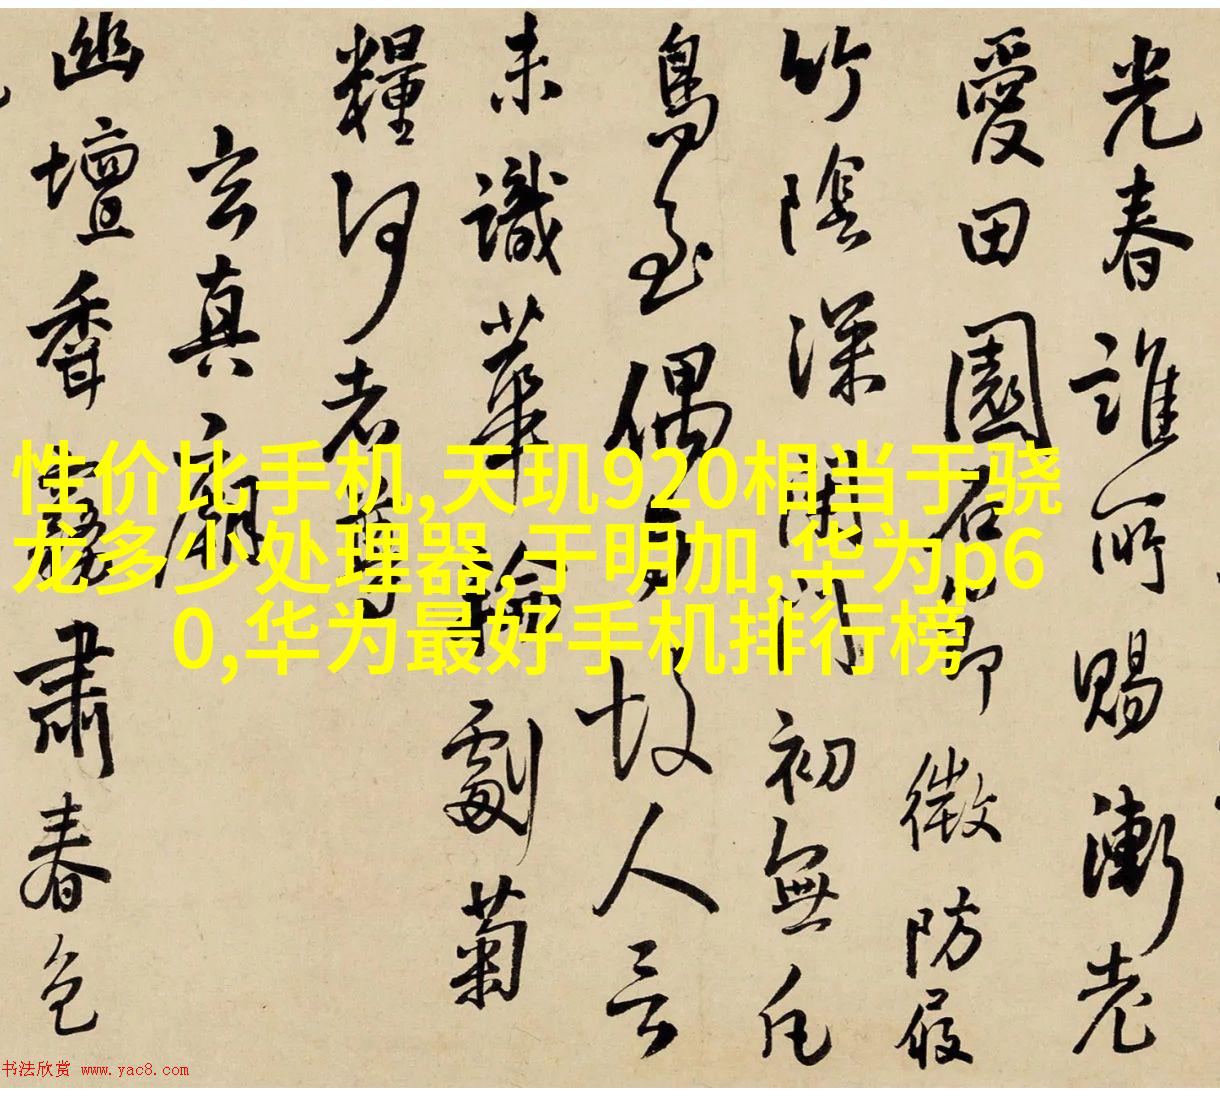 光春誰所賜漸老
愛田園石節微防屐
竹陰深閉門初無尼
鳥至偶
故人言
未識華
劇菊
糧何老
玄真廟
幽壇香
肅春色
性价比手机,天玑920相当于骁
龙多少处理器,于明加,华为p6
0,华为最好手机排行榜
书法欣赏 www.yac8.com